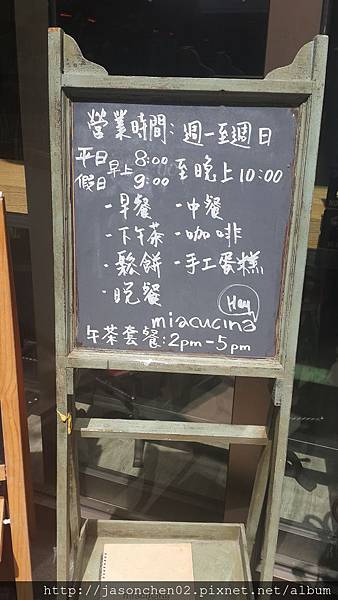 營業時間:週一至週日
平日早上8:00至晚上10:00
假日9:00
·早餐 ·中餐
·下午茶 ·咖啡
·鬆餅 ·手工蛋糕
·晚餐
Hey
miacucina
午茶套餐:2pm-5pm
http://jasonchen02.pixnet.net/album